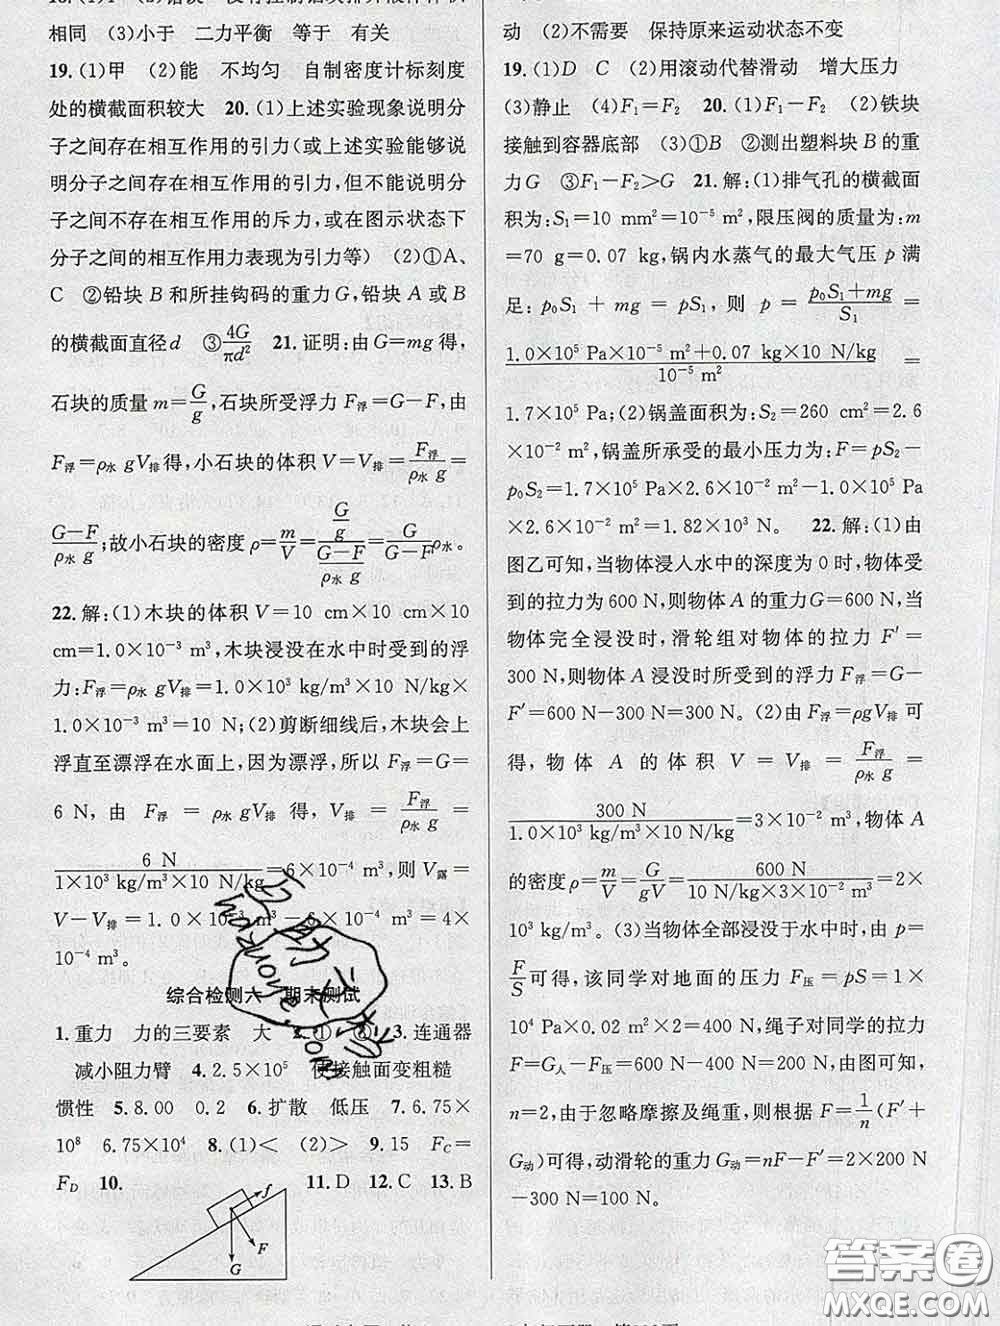 相同　(3)小于　二力平衡　等于　有关
19.(1)甲　(2)能　不均匀　自制密度计标刻度
处的横截面积较大　20.(1)上述实验现象说明分
子之间存在相互作用的引力(或上述实验能够说
明分子之间存在相互作用的引力,但不能说明分
子之间不存在相互作用的斥力,或在图示状态下
分子之间的相互作用力表现为引力等)　(2)①A、
C　②铅块 B 和所挂钩码的重力 G,铅块 A 或 B
的横截面直径 d　③4G/πd²　21.证明:由 G=mg 得,
石块的质量 m=G/g,石块所受浮力 F浮=G−F,由
F浮=ρ水 gV排得,小石块的体积 V=V排=F浮/ρ水 g=
(G−F)/ρ水 g;故小石块的密度 ρ=m/V=(G/g)/((G−F)/ρ水 g)=G/(G−F) ρ水。
22.解:(1)木块的体积 V=10 cm×10 cm×10
cm=1.0×10⁻³ m³,木块浸没在水中时受到的浮
力:F浮=ρ水 gV排=1.0×10³ kg/m³×10 N/kg×
1.0×10⁻³ m³=10 N;(2)剪断细线后,木块会上
浮直至漂浮在水面上,因为漂浮,所以 F浮=G=
6 N,由 F浮=ρ水 gV排 得,V排=F浮/ρ水 g=
6 N/(1×10³ kg/m³×10 N/kg)=6×10⁻⁴ m³,则 V露=
V−V排=1.0×10⁻³ m³−6×10⁻⁴ m³=4×
10⁻⁴ m³。
综合检测六　期末测试
1.重力　力的三要素　大　2.①　②　3.连通器
减小阻力臂　4.2.5×10⁵　使接触面变粗糙
惯性　5.8.00　0.2　6.扩散　低压　7.6.75×
10⁸　6.75×10⁴　8.(1)<　(2)>　9.15　F_C=
F_D　10.　11.D　12.C　13.B
f
F
G
动　(2)不需要　保持原来运动状态不变
19.(1)D　C　(2)用滚动代替滑动　增大压力
(3)静止　(4)F₁=F₂　20.(1)F₁−F₂　(2)铁块
接触到容器底部　(3)①B　②测出塑料块 B 的重
力 G　③F₁−F₂>G　21.解:(1)排气孔的横截面
积为:S₁=10 mm²=10⁻⁵ m²,限压阀的质量为:m
=70 g=0.07 kg,锅内水蒸气的最大气压 p 满
足:p₀S₁+mg=pS₁,则 p=(p₀S₁+mg)/S₁=
(1.0×10⁵ Pa×10⁻⁵ m²+0.07 kg×10 N/kg)/10⁻⁵ m²=
1.7×10⁵ Pa;(2)锅盖面积为:S₂=260 cm²=2.6
×10⁻² m²,锅盖所承受的最小压力为:F=pS₂−
p₀S₂=1.7×10⁵ Pa×2.6×10⁻² m²−1.0×10⁵ Pa
×2.6×10⁻² m²=1.82×10³ N。　22.解:(1)由
图乙可知,当物体浸入水中的深度为 0 时,物体受
到的拉力为 600 N,则物体 A 的重力G=600 N,当
物体完全浸没时,滑轮组对物体的拉力 F′=
300 N,则物体 A 浸没时所受到的浮力 F浮=G−
F′=600 N−300 N=300 N。(2)由 F浮=ρgV排 可
得,物体 A 的体积 V=V排=F浮/ρ水 g=
300 N/(1.0×10³ kg/m³×10 N/kg)=3×10⁻² m³,物体 A
的密度 ρ=m/V=G/gV=600 N/(10 N/kg×3×10⁻² m³)=2×
10³ kg/m³。(3)当物体全部浸没于水中时,由 p=
F/S可得,该同学对地面的压力 F压=pS=1×
10⁴ Pa×0.02 m²×2=400 N,绳子对同学的拉力
F=G人−F压=600 N−400 N=200 N,由图可知,
n=2,由于忽略摩擦及绳重,则根据 F=1/n(F′+
G动)可得,动滑轮的重力 G动=nF−F′=2×200 N
−300 N=100 N。
答案圈
MXQE.COM